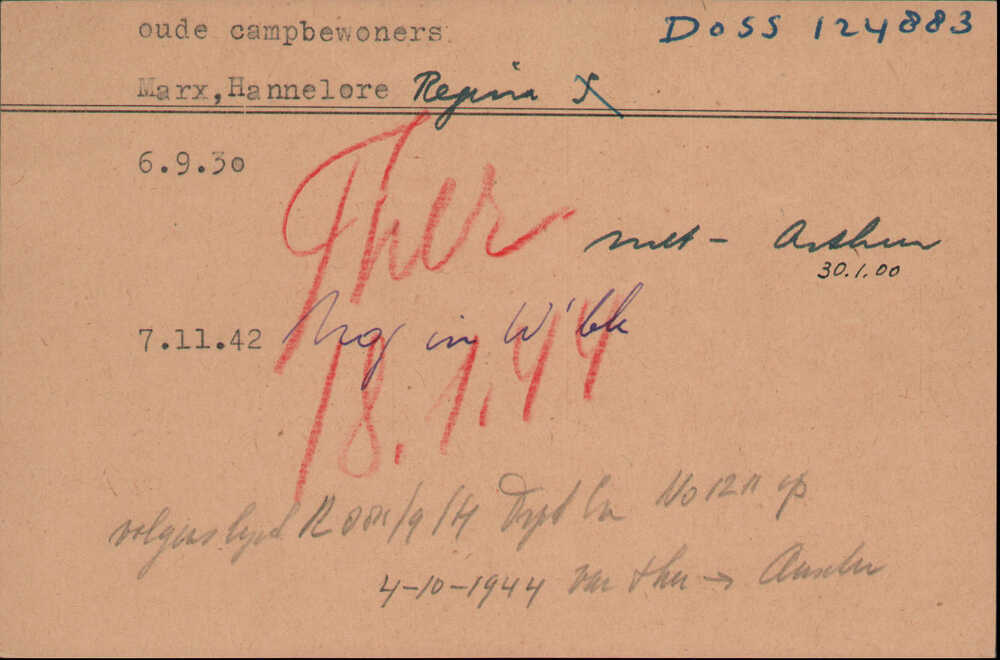 oude campbewoners. DOSS 124883
Marx, Hannelore Regina
6.9.30
Ther
met - Arthur
30.1.00
7.11.42 Nog in W'bk
18.1.44
volgens lijst No 1211 op
4-10-1944 van Ther → Auschw